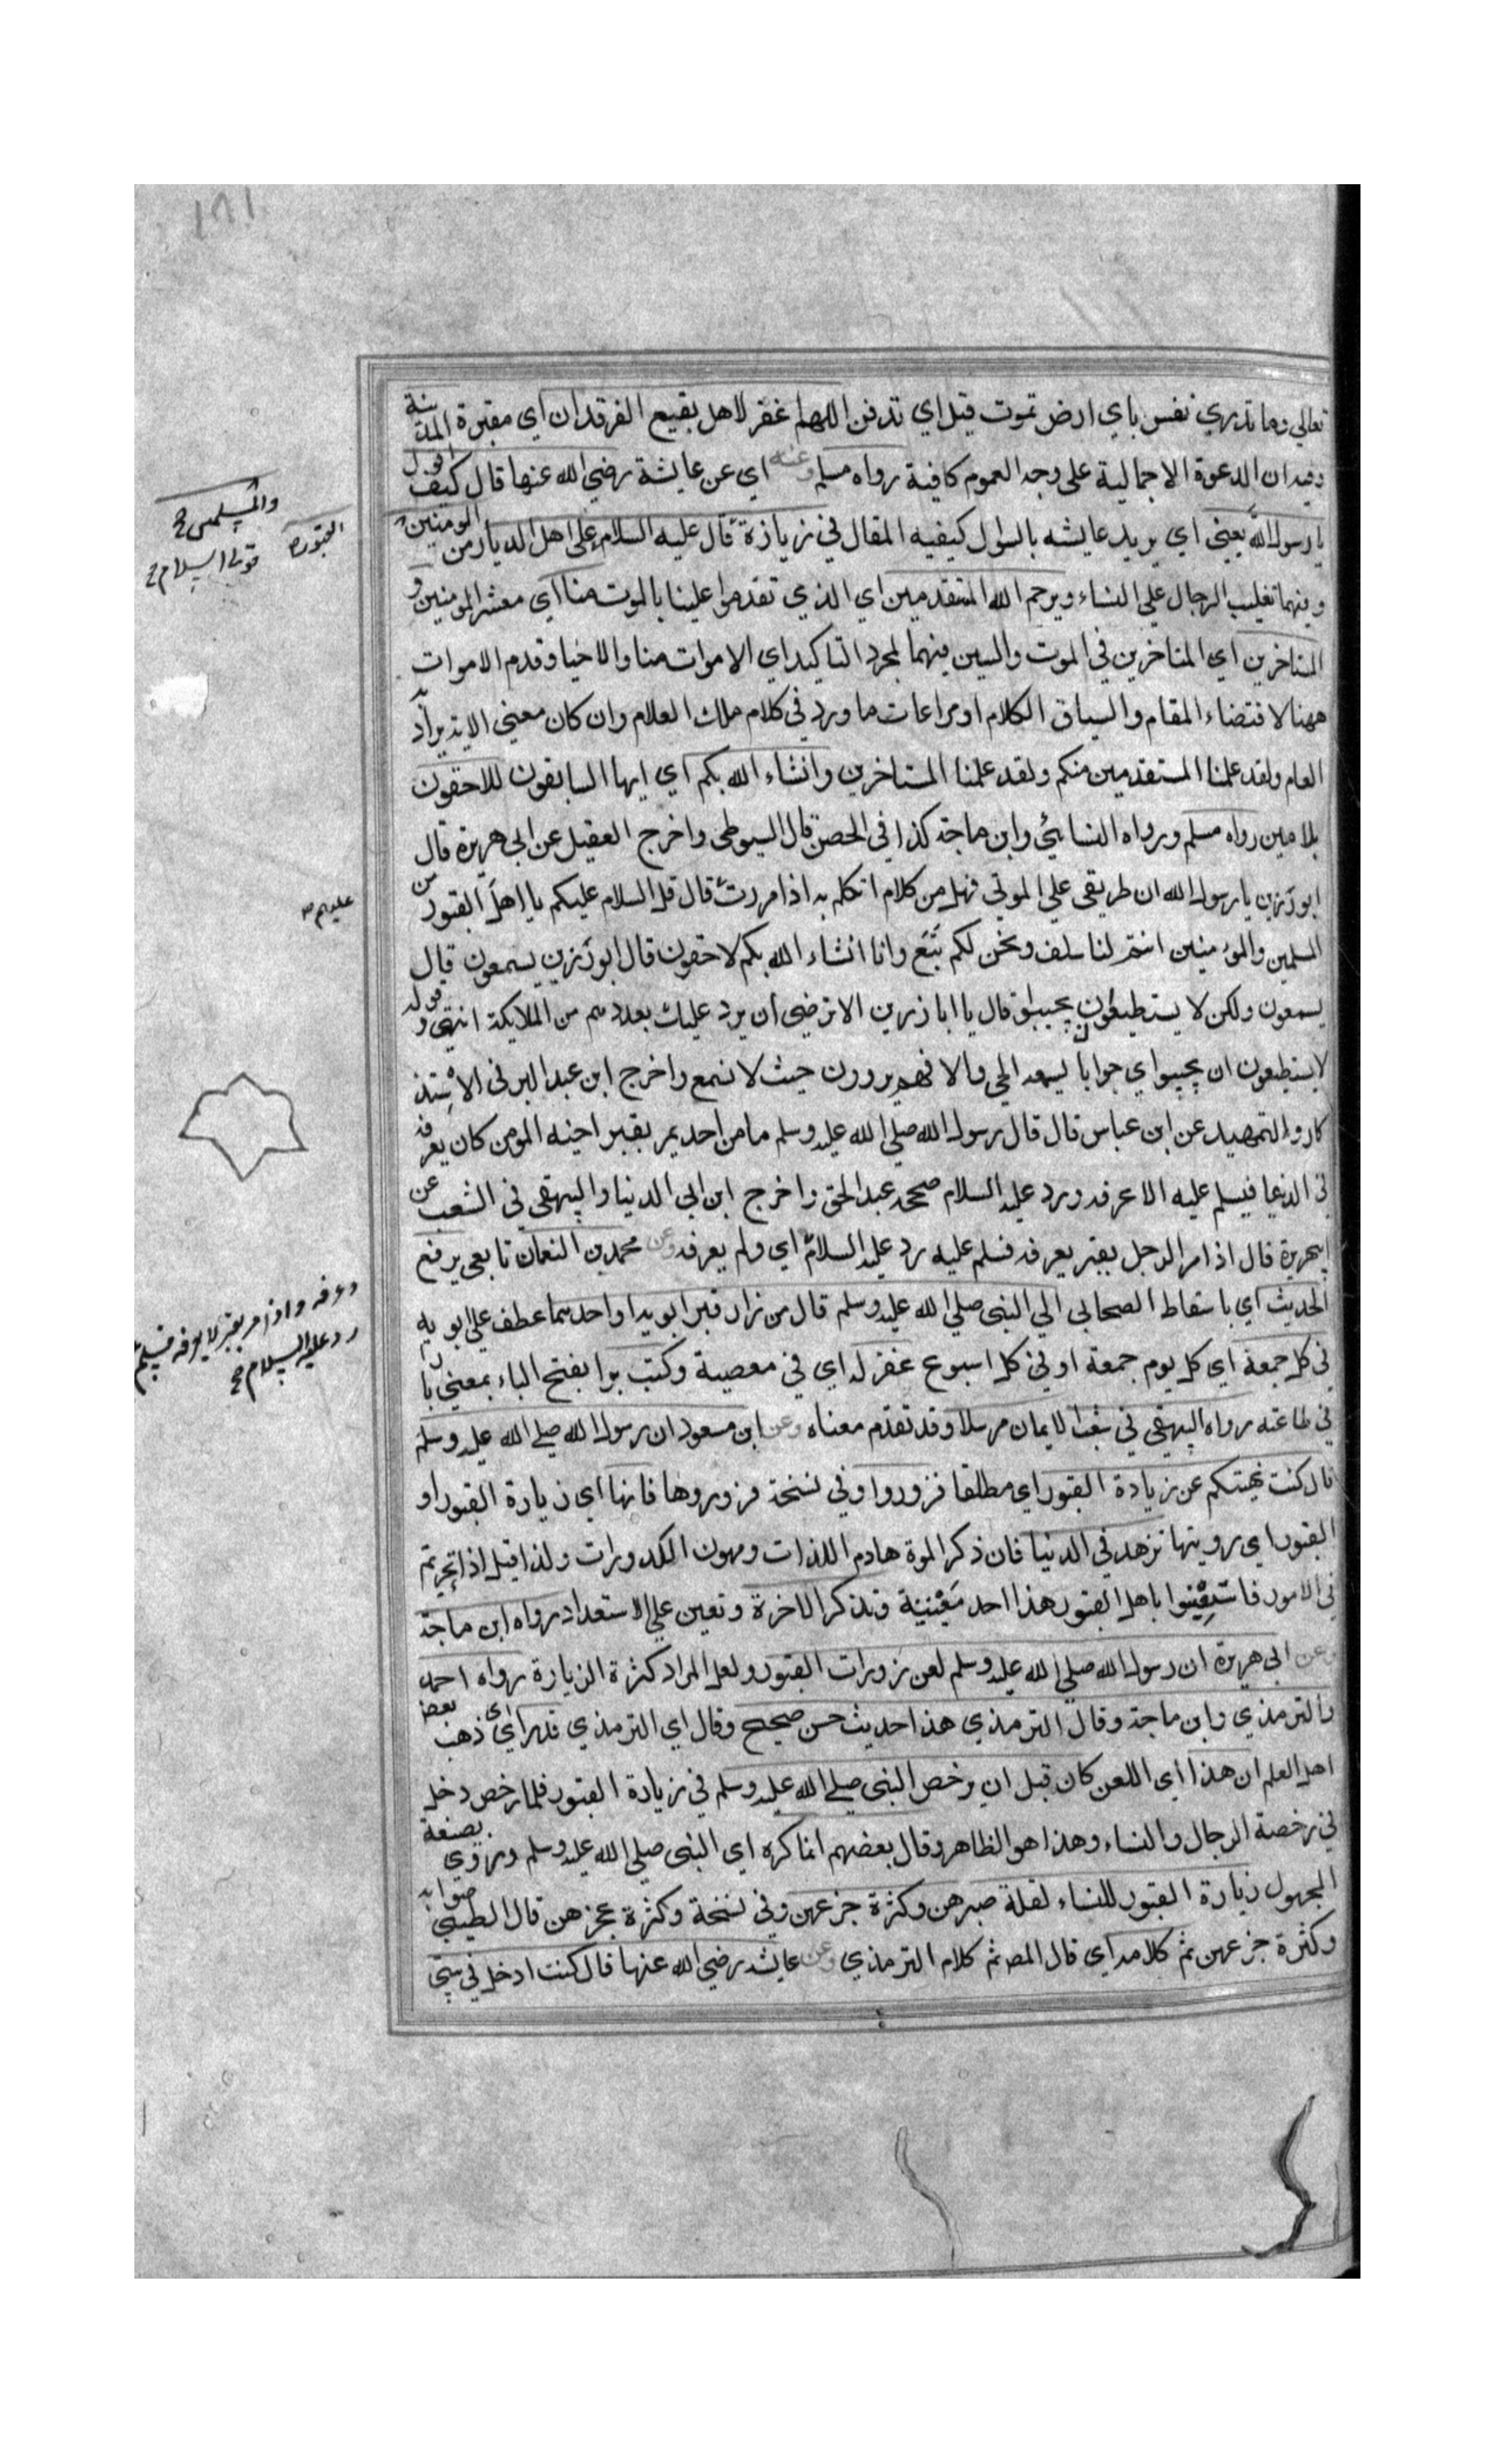 تعالي وما تدري نفس باي ارض تموت قيل اي تدفن اللهم اغفر لاهل بقيع الغرقدان اي مقبرة المدينة
وفيه ان الدعوة الاجمالية على وجه العموم كافية رواه مسلم وعنه اي عن عايشة رضي الله عنها قال كيف اقول
يا رسول الله يعني اي يريد عايشه بالسوال كيفيه المقال في زيارة قال عليه السلام على اهل الديار من المومنين
وفيهما تغليب الرجال علي النساء ويرحم الله المتقدمين اي الذي تقدموا علينا بالموت منا اي معشر المومنين و
المتاخرين اي المتاخرين في الموت والسين فيهما لمجرد التاكيد اي الاموات منا والاحيا وقدم الاموات
ههنا لاقتضاء المقام والسياق الكلام او مراعات ما ورد في كلام ملك العلام وان كان معني الاية يراد به
العام ولقد علمنا المستقدمين منكم ولقد علمنا المستاخرين وانشاء الله بكم اي ايها السابقون للاحقون
بلامين رواه مسلم ورواه النسائي وابن ماجة كذا في الحصن قال السيوطي واخرج العقيل عن ابي هريرة قال
ابو رزين يا رسول الله ان طريقي علي الموتي فهل من كلام اتكلم به اذا مررت قال قل السلام عليكم يا اهل القبور من
المسلمين والمؤمنين انتم لنا سلف ونحن لكم تبع وانا انشاء الله بكم لاحقون قال ابو رزين يسمعون قال
يسمعون ولكن لا يستطيعون يجيبوا قال يا ابا رزين الا ترضي ان يرد عليك بعددهم من الملايكة انتهي وقوله
لا يستطيعون ان يجيبوا اي جوابا يسمعه الحي والا فهم يردون حيث لا نسمع واخرج ابن عبد البر في الاستذ
كار والتمهيد عن ابن عباس قال قال رسول الله صلي الله عليه وسلم ما من احد يمر بقبر اخيه المومن كان يعرفه
في الدنيا فيسلم عليه الا عرفه ورد عليه السلام صححه عبد الحق واخرج ابن ابي الدنيا والبيهقي في الشعب عن
ابيهريرة قال اذا مر الرجل بقبر يعرفه فسلم عليه رد عليه السلام اي ولم يعرفه وعن محمد بن النعمان تابعي يرفع
الحديث اي باسقاط الصحابي الي النبي صلي الله عليه وسلم قال من زار قبر ابويه او احدهما عطف علي ابويه
في كل جمعة اي كل يوم جمعة او في كل اسبوع غفر له اي في معصية وكتب برا بفتح الباء بمعني بارا
في طاعته رواه البيهقي في شعب الايمان مرسلا وقد تقدم معناه وعن ابن مسعود ان رسول الله صلي الله عليه وسلم
قال كنت نهيتكم عن زيادة القبور اي مطلقا فزوروا وفي نسخة فزوروها فانها اي زيارة القبور او
القبور اي رويتها تزهد في الدنيا فان ذكر الموة هادم اللذات ومهون الكدورات ولذا قيل اذا تحيرتم
في الامور فاستعينوا باهل القبور هذا احد معنييه وتذكر الاخرة وتعين علي الاستعداد رواه ابن ماجة
وعن ابي هريرة ان رسول الله صلي الله عليه وسلم لعن زورات القبور ولعل المراد كثرة الزيارة رواه احمد
والترمذي وابن ماجة وقال الترمذي هذا حديث حسن صحيح وقال اي الترمذي قد راي اي ذهب بعض
اهل العلم ان هذا اي اللعن كان قبل ان يرخص النبي صلي الله عليه وسلم في زيادة القبور فلما رخص دخل
في رخصة الرجال والنساء وهذا هو الظاهر وقال بعضهم انما كره اي النبي صلي الله عليه وسلم وروي بصيغة
المجهول زيارة القبور للنساء لقلة صبرهن وكثرة جزعهن وفي نسخة وكثرة عجزهن قال الطيبي صوابه
وكثرة جزعهن تم كلامه اي قال المص تم كلام الترمذي وعن عايشه رضي الله عنها قال كنت ادخل في بيتي
والمسلمين
القبور
قولي السلام
عليهم
وعرفه واذا مر بقبر لا يعرفه فسلم
رد عليه السلام